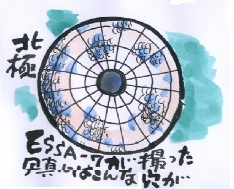 北極
ESSA-7が撮った
写真にはこんな穴が